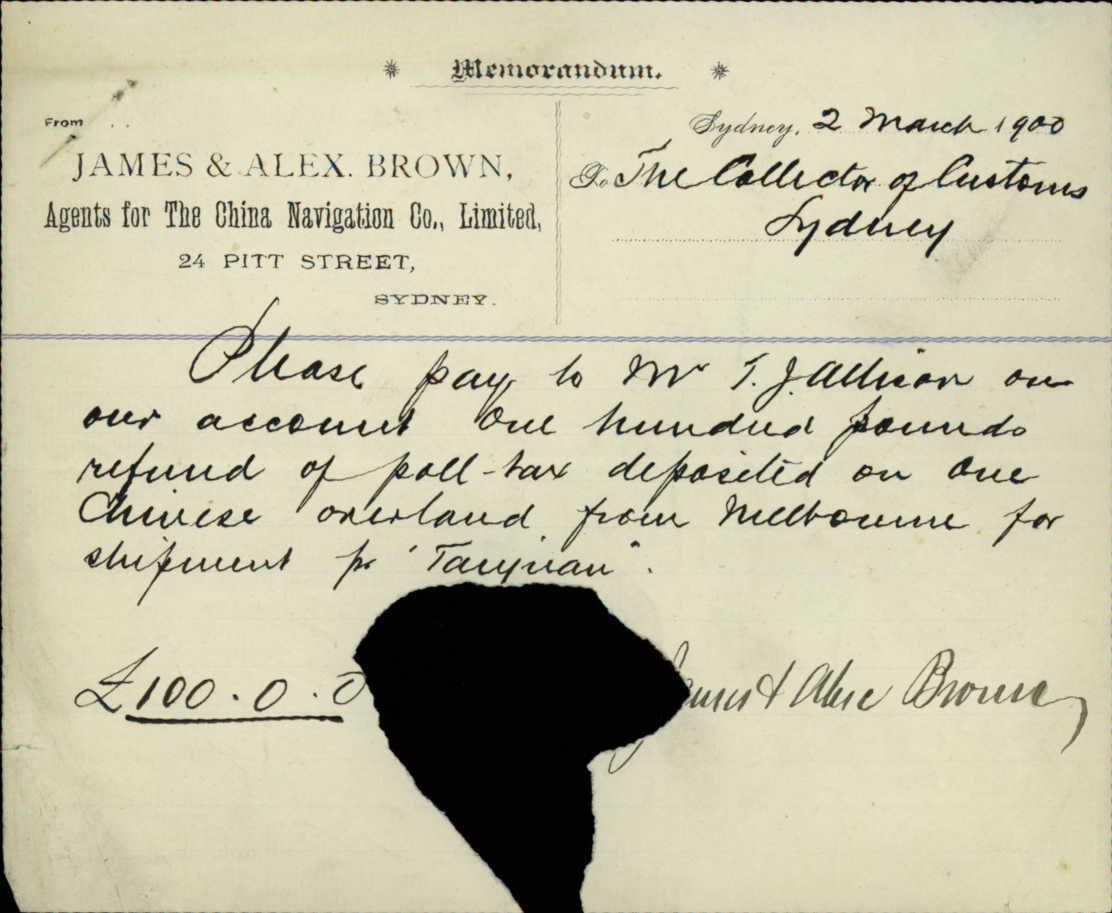 Memorandum.
From
JAMES & ALEX. BROWN,
Agents for The China Navigation Co., Limited,
24 PITT STREET,
SYDNEY.
Sydney, 2 March 1900
To The Collector of Customs
Sydney
Please pay to Mr T. J. Allison on
our account One hundred pounds
refund of poll-tax deposited on One
Chinese overland from Melbourne for
shipment pr "Taiyuan".
£100.0.0
James & Alex Brown